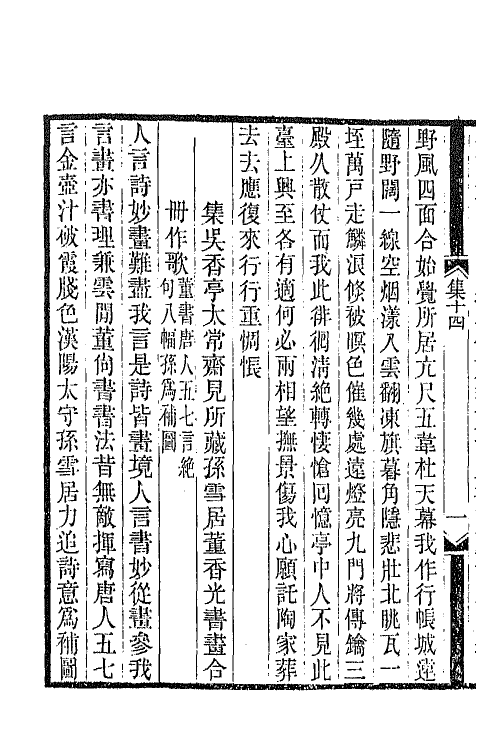 野風四面合始覺所居亢尺五韋杜天幕我作行帳城遠
隨野闊一線空烟漾入雲翻凍旗暮角隱悲壯北眺瓦一
垤萬戸走鱗浪倐被暝色催幾處遠燈亮九門將傳鑰三
殿久散仗而我此徘徊淸絶轉悽愴囘憶亭中人不見此
臺上興至各有適何必兩相望撫景傷我心願託陶家葬
去去應復來行行重惆悵
集吳香亭太常齋見所藏孫雪居董香光書畫合
冊作歌董書唐人五七言絶句八幅孫爲補圖
人言詩妙畫難盡我言是詩皆畫境人言書妙從畫參我
言畫亦書理兼雲閒董尙書書法昔無敵揮寫唐人五七
言金壺汁破霞牋色漢陽太守孫雪居力追詩意爲補圖
集十四
一